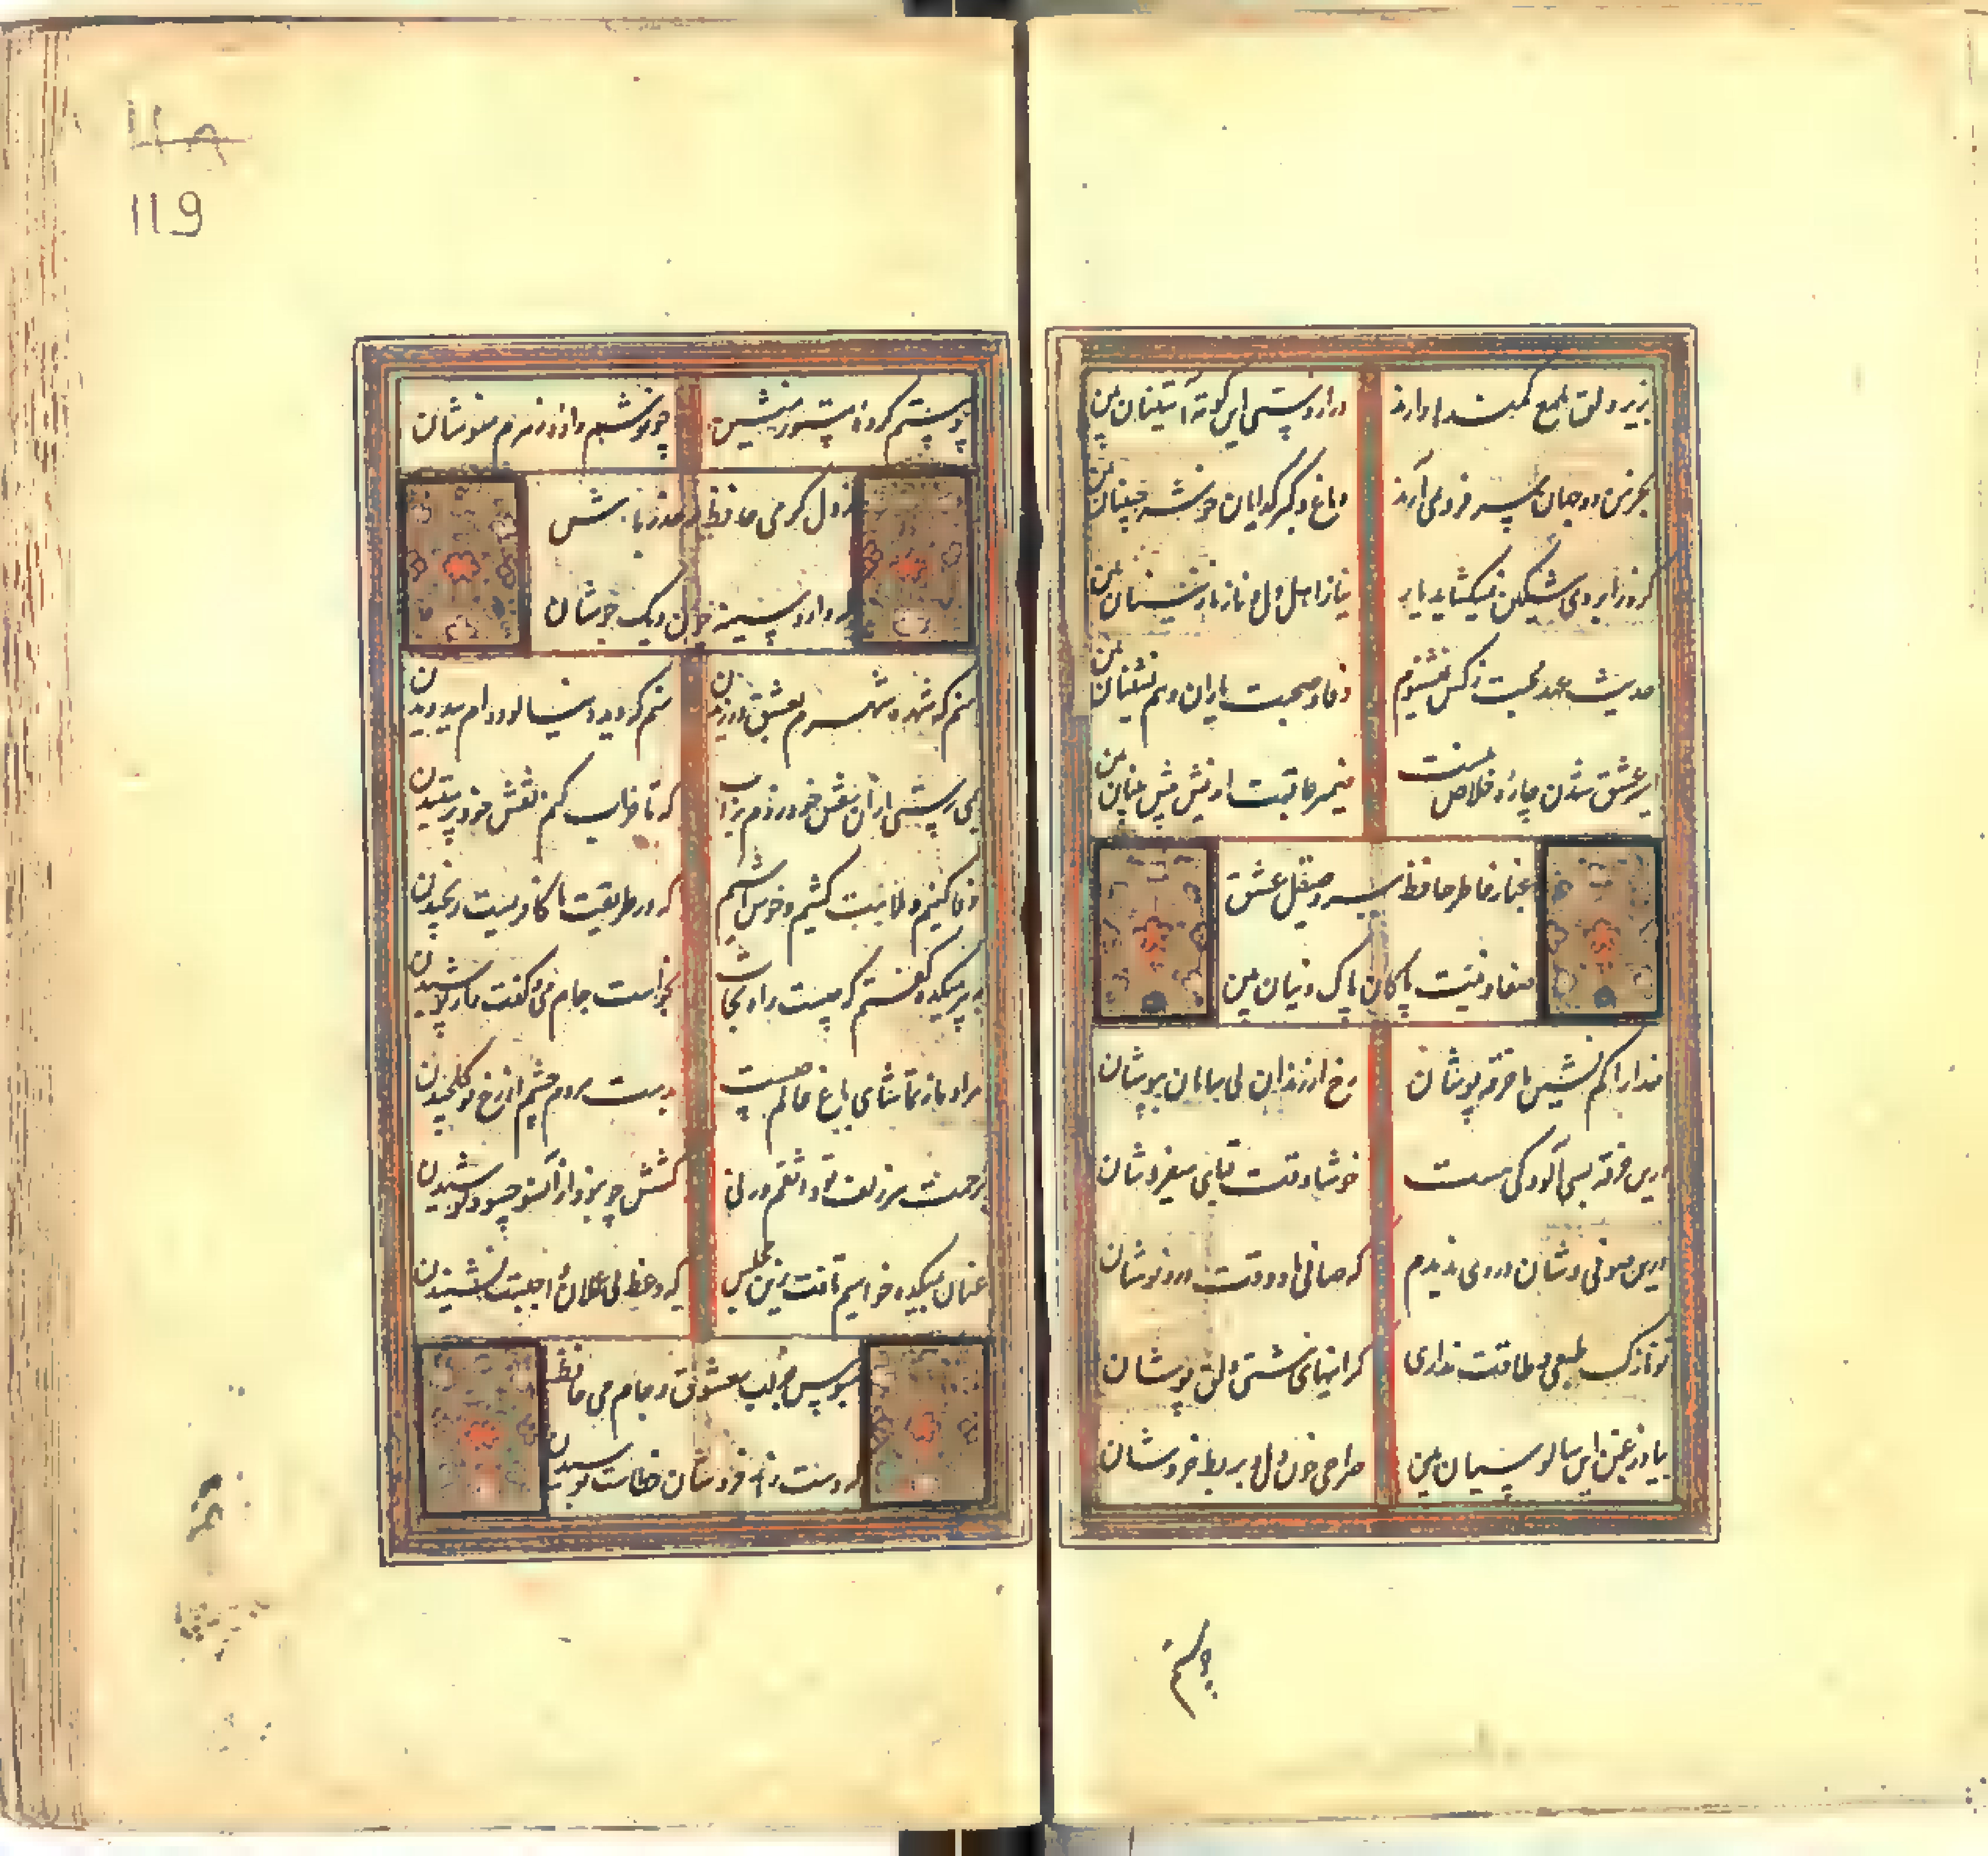 بزیر دلق ملمع کمندها دارند
درازدستی این کوته آستینان بین
بخرمن دو جهان سر فرو نمی آرند
دماغ و کبر گدایان خوشه چینان بین
گره ز ابروی مشکین نمیگشاید یار
نیاز اهل دل و ناز نازنینان بین
حدیث عهد محبت ز کس نمیشنوم
وفا و صحبت یاران و همنشینان بین
اسیر عشق شدن چاره خلاص منست
ضمیر عاقبت اندیش پیش بینان بین
غبار خاطر حافظ ببرد صیقل عشق
صفا و نیت پاکان پاک دینان بین
خدارا کم نشین با خرقه پوشان
رخ از رندان بی سامان مپوشان
درین خرقه بسی آلودگی هست
خوشا وقت قبای میفروشان
درین صوفی وشان دردی ندیدم
که صافی باد وقت دردنوشان
تو نازک طبعی و طاقت نداری
گرانیهای مشتی دلق پوشان
بیا وز غبن این سالوسیان بین
صراحی خون دل و بربط خروشان
چو مستم
چو مستم کرده مستور منشین
چو نوشم داده زهرم منوشان
ز دل گرمی حافظ بر حذر باش
که دارد سینه چون دیگ جوشان
منم که شهره شهرم بعشق ورزیدن
منم که دیده نیالوده ام ببد دیدن
بمی پرستی از آن نقش خود زدم بر آب
که تا خراب کنم نقش خود پرستیدن
وفا کنیم و ملامت کشیم و خوش باشیم
که در طریقت ما کافریست رنجیدن
به پیر میکده گفتم که چیست راه نجات
بخواست جام می و گفت راز پوشیدن
مراد ما ز تماشای باغ عالم چیست
بدست مردم چشم از رخ تو گل چیدن
برحمت سر زلف تو واثقم ورنه
کشش چو نبود از آنسو چه سود کوشیدن
عنان بمیکده خواهیم تافت زین مجلس
که وعظ بی عملان واجبست نشنیدن
مبوس جز لب معشوق و جام می حافظ
که دست زهد فروشان خطاست بوسیدن
119